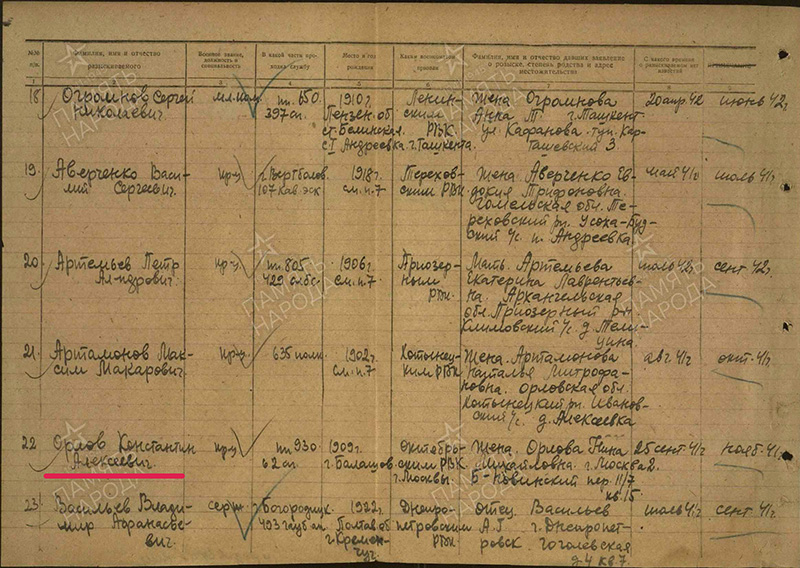 №№ п/п.
Фамилия, имя и отчество разыскиваемого
Военное звание, должность и специальность
В какой части проходил службу
Место и год рождения
Каким военкоматом призван
Фамилия, имя и отчество давших заявление о розыске, степень родства и адрес местожительства
С какого времени
18 Огромнов Сергей Николаевич.
пп. 650
397 сп.
1910 г.
Пензен. об
ст. Белинская
с. I Андреевка
Ленинским РВК
г. Ташкента.
Жена Огромнова
Анна Т г. Ташкент
ул. Кафанова туп. Карташевский 3.
20 апр 42
июнь 42 г.
19. Аверченко Василий Сергеевич.
кр-ц
107 кав. эск.
1918 г.
см. п. 7
Тереховским РВК
Жена. Аверченко Евдокия Трифоновна.
Гомельская обл. Тереховский рн Усоха-Будский с/с. п. Андреевка
май 41 г
июль 41 г.
20. Артемьев Петр Ал-ндрович.
кр-ц
пп. 805
429
1906 г.
см. п. 7
Приозерным РВК
Мать. Артемьева
Екатерина Лаврентьевна. Архангельская
обл. Приозерный р-н
Климовский с/с д.
июль 42 г.
сент 42 г.
21. Артамонов Максим Макарович.
кр-ц
635 полк.
1902 г.
см. п. 7
Хотынецким РВК
Жена. Артамонова
Наталья Митрофановна. Орловская обл.
Хотынецкий рн. Ивановский с/с. д. Алексеевка
авг. 41 г
окт. 41 г.
22 Орлов Константин
Алексеевич.
кр-ц
пп. 930
62 сп.
1909 г.
г. Балашов
Октябрьским РВК
г. Москвы
Жена. Орлова Нина
Михайловна. г. Москва 2.
Б-Новинский пер. 11/7
кв. 15.
25 сент 41 г
нояб. 41 г.
23 Васильев Владимир Афанасьевич.
серж.
493 гауб ап
1922 г.
Полтав об
г. Кременчуг.
Днепропетровским РВК
Отец. Васильев
А. Г. г. Днепропетровск. Гоголевская
д. 4 кв. 7.
июль 41 г
сент 41 г.
ПАМЯТЬ НАРОДА